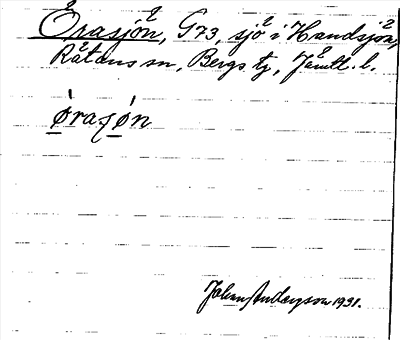 Örasjön, G73, sjö i Handsjön,
Rätans sn, Bergs tg, Jämtl. l.
Øraʃøn
Johan Anderson 1931.